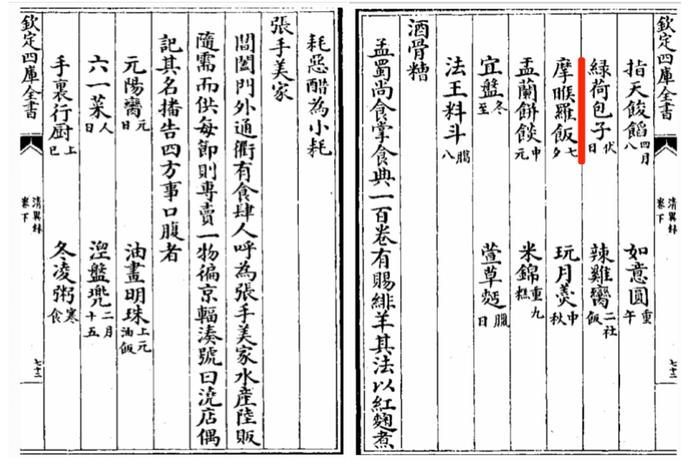 耗惡醋為小耗
張手美家
閶闔門外通衢有食肆人呼為張手美家水産陸販
隨需而供每節則專賣一物徧京輻湊號曰澆店偶
記其名播告四方事口腹者
元陽臠 元日 油畫明珠 上元油飯
六一菜 人日 涅盤兜 二月十五
手裏行廚 上巳 冬凌粥 寒食
欽定四庫全書 清異録 卷下 七十二
欽定四庫全書 清異録 卷下 七十二
指天餕餡 四月八 如意圓 重午
綠荷包子 伏日 辣雞臠 二社飯
摩睺羅飯 七夕 玩月羹 中秋
盂蘭餅餤 中元 米錦 重九糕
宜盤 冬至 萱草麪 臘日
法王料斗 臘八
酒骨糟
孟蜀尚食掌食典一百卷有賜緋羊其法以紅麹煮